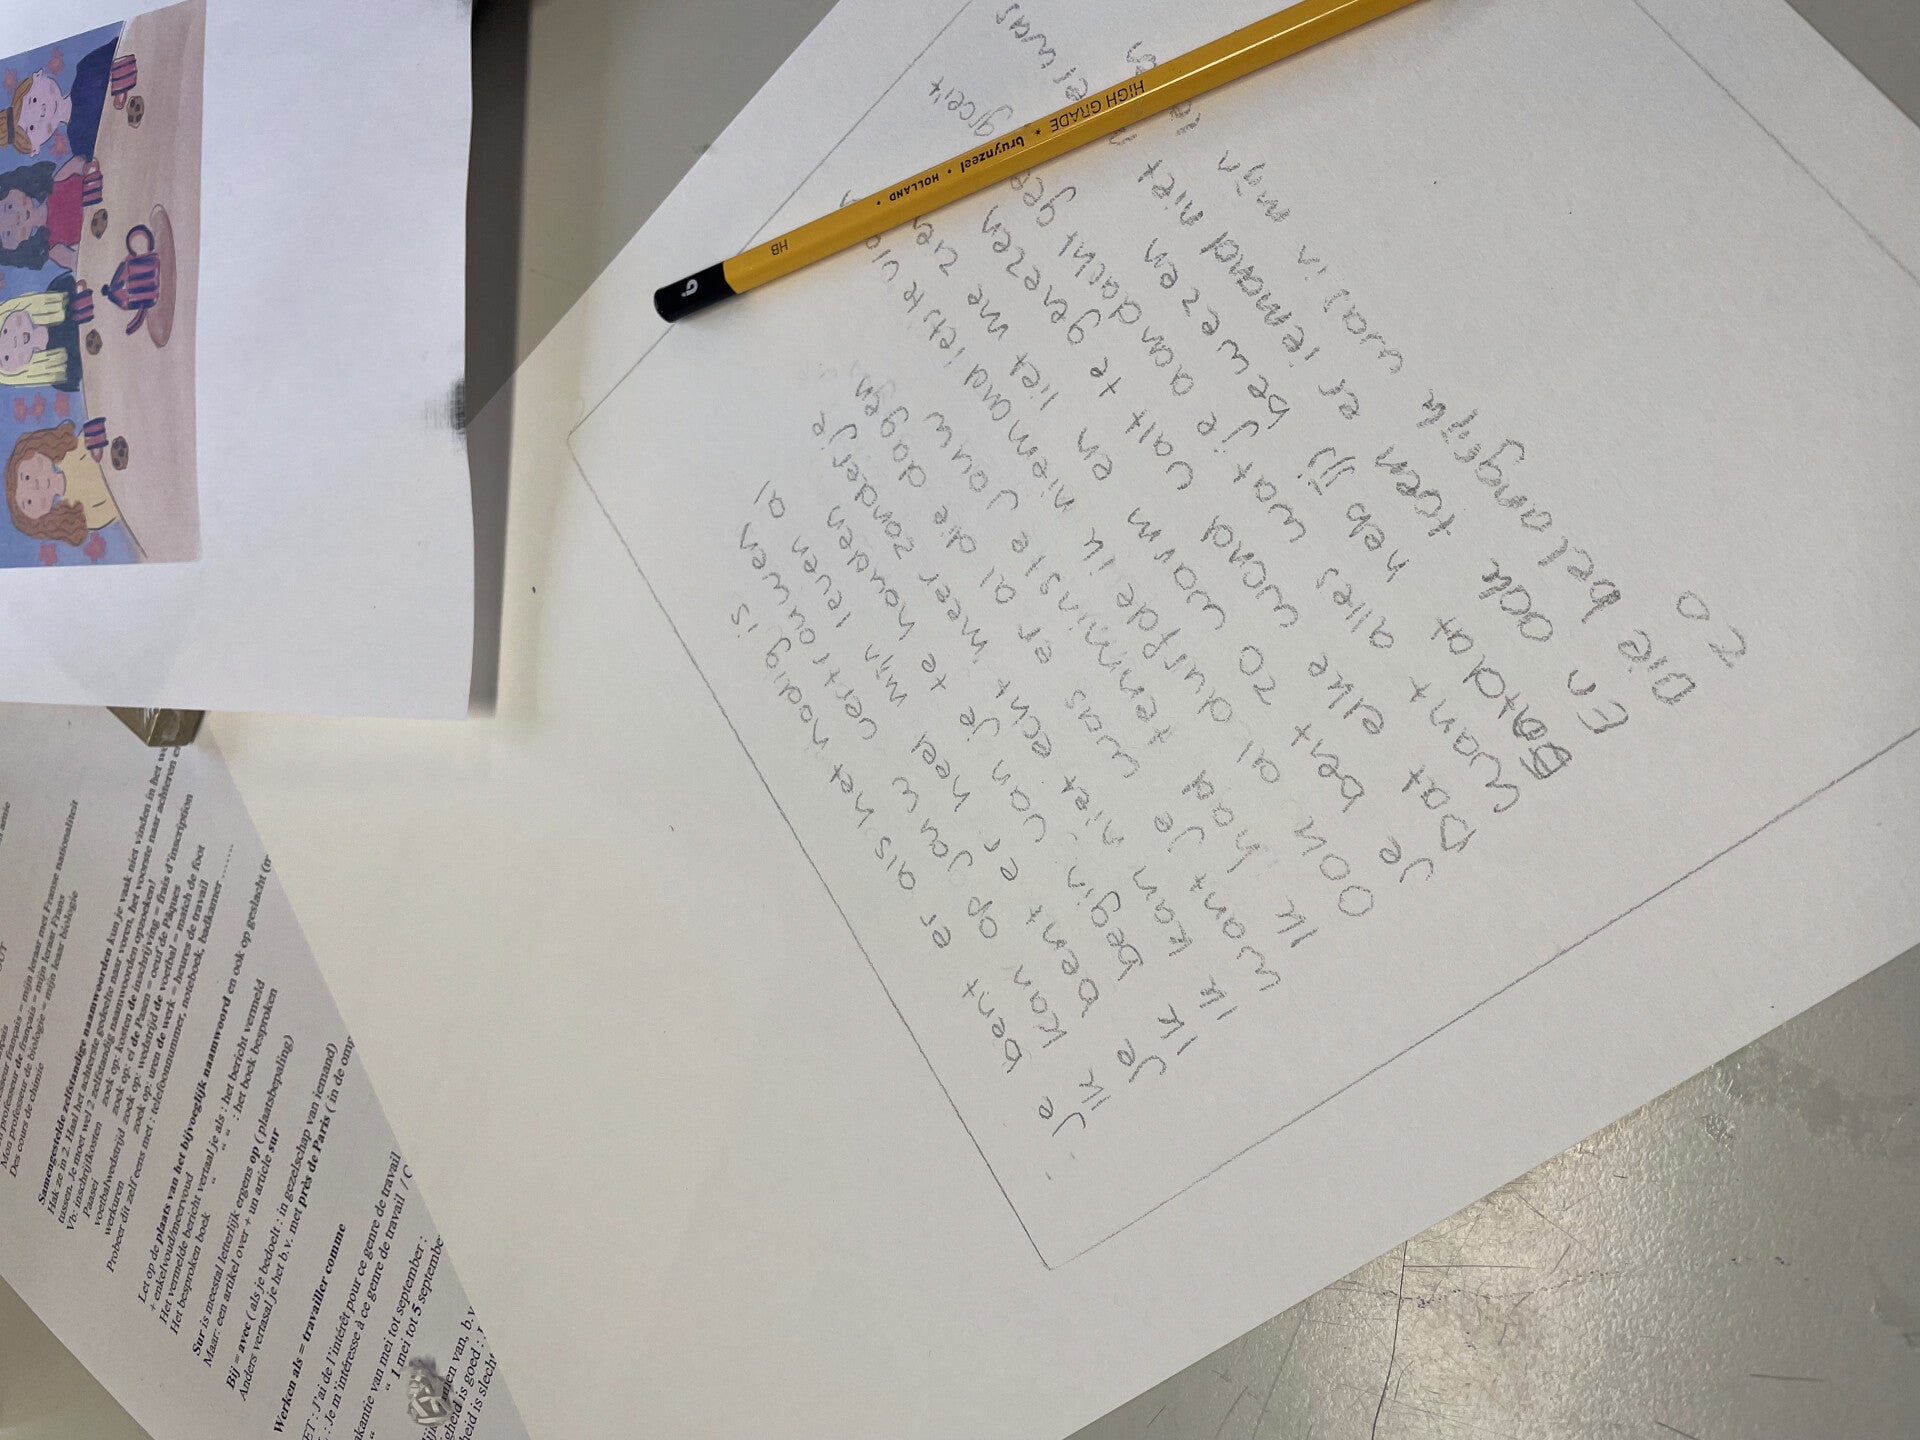 Je bent er als het nodig is
Ik kan op jouw vertrouwen
Je bent er heel mijn leven al
Ik begin van je te houden
Ik kan niet echt meer zonder je
want je was er al die dagen
Ik had tenminste jouw
Ook al durfde ik niemand iets te
Je bent zo warm en liet me zien
Dat elke wond valt te genezen
want alles wat je aandacht groeit
Dat heb jij bewezen
En ook toen er iemand niet er was
Die belangrijk was in mijn
Zo
HB bruynzeel • HOLLAND • HIGH GRADE
Mon professeur de français = mijn leraar Frans
Mon professeur de biologie = mijn leraar biologie
Des cours de chimie
Samengestelde zelfstandige naamwoorden kun je vaak niet vinden in het
Hak ze in 2. Haal het achterste gedeelte naar voren, het voorste naar achteren
tussen. Je moet wel 2 zelfstandig naamwoorden opzoeken!
Vb: inschrijfkosten zoek op: kosten de inschrijving = frais d'inscription
Paasei zoek op: ei de Pasen = oeuf de Pâques
voetbalwedstrijd zoek op: wedstrijd de voetbal = match de foot
werkuren zoek op: uren de werk = heures de travail
Probeer dit zelf eens met : telefoonnummer, notebook, badkamer ……
Let op de plaats van het bijvoeglijk naamwoord en ook op geslacht
+ enkelvoud/meervoud
Het vermelde bericht vertaal je als : het bericht vermeld
Het besproken boek " " " : het boek besproken
Sur is meestal letterlijk ergens op ( plaatsbepaling)
Maar: een artikel over + un article sur
Bij = avec ( als je bedoelt : in gezelschap van iemand)
Anders vertaal je het b.v. met près de Paris ( in de
Werken als = travailler comme
: J'ai de l'intérêt pour ce genre de travail
: Je m'intéresse à ce genre de travail
van mei tot september :
" 1 mei tot 5 september
is goed :
is slecht